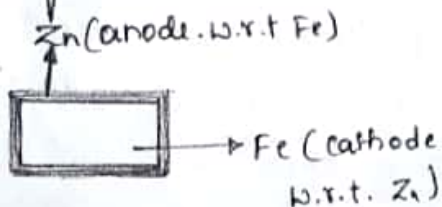 Zn (anode. w.r.t Fe)
Fe (cathode
w.r.t. Zn)